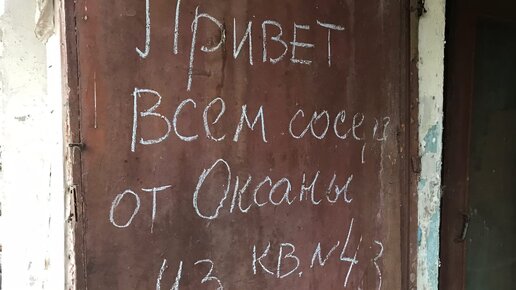 Привет
всем сосед
от Оксаны
из кв. №43